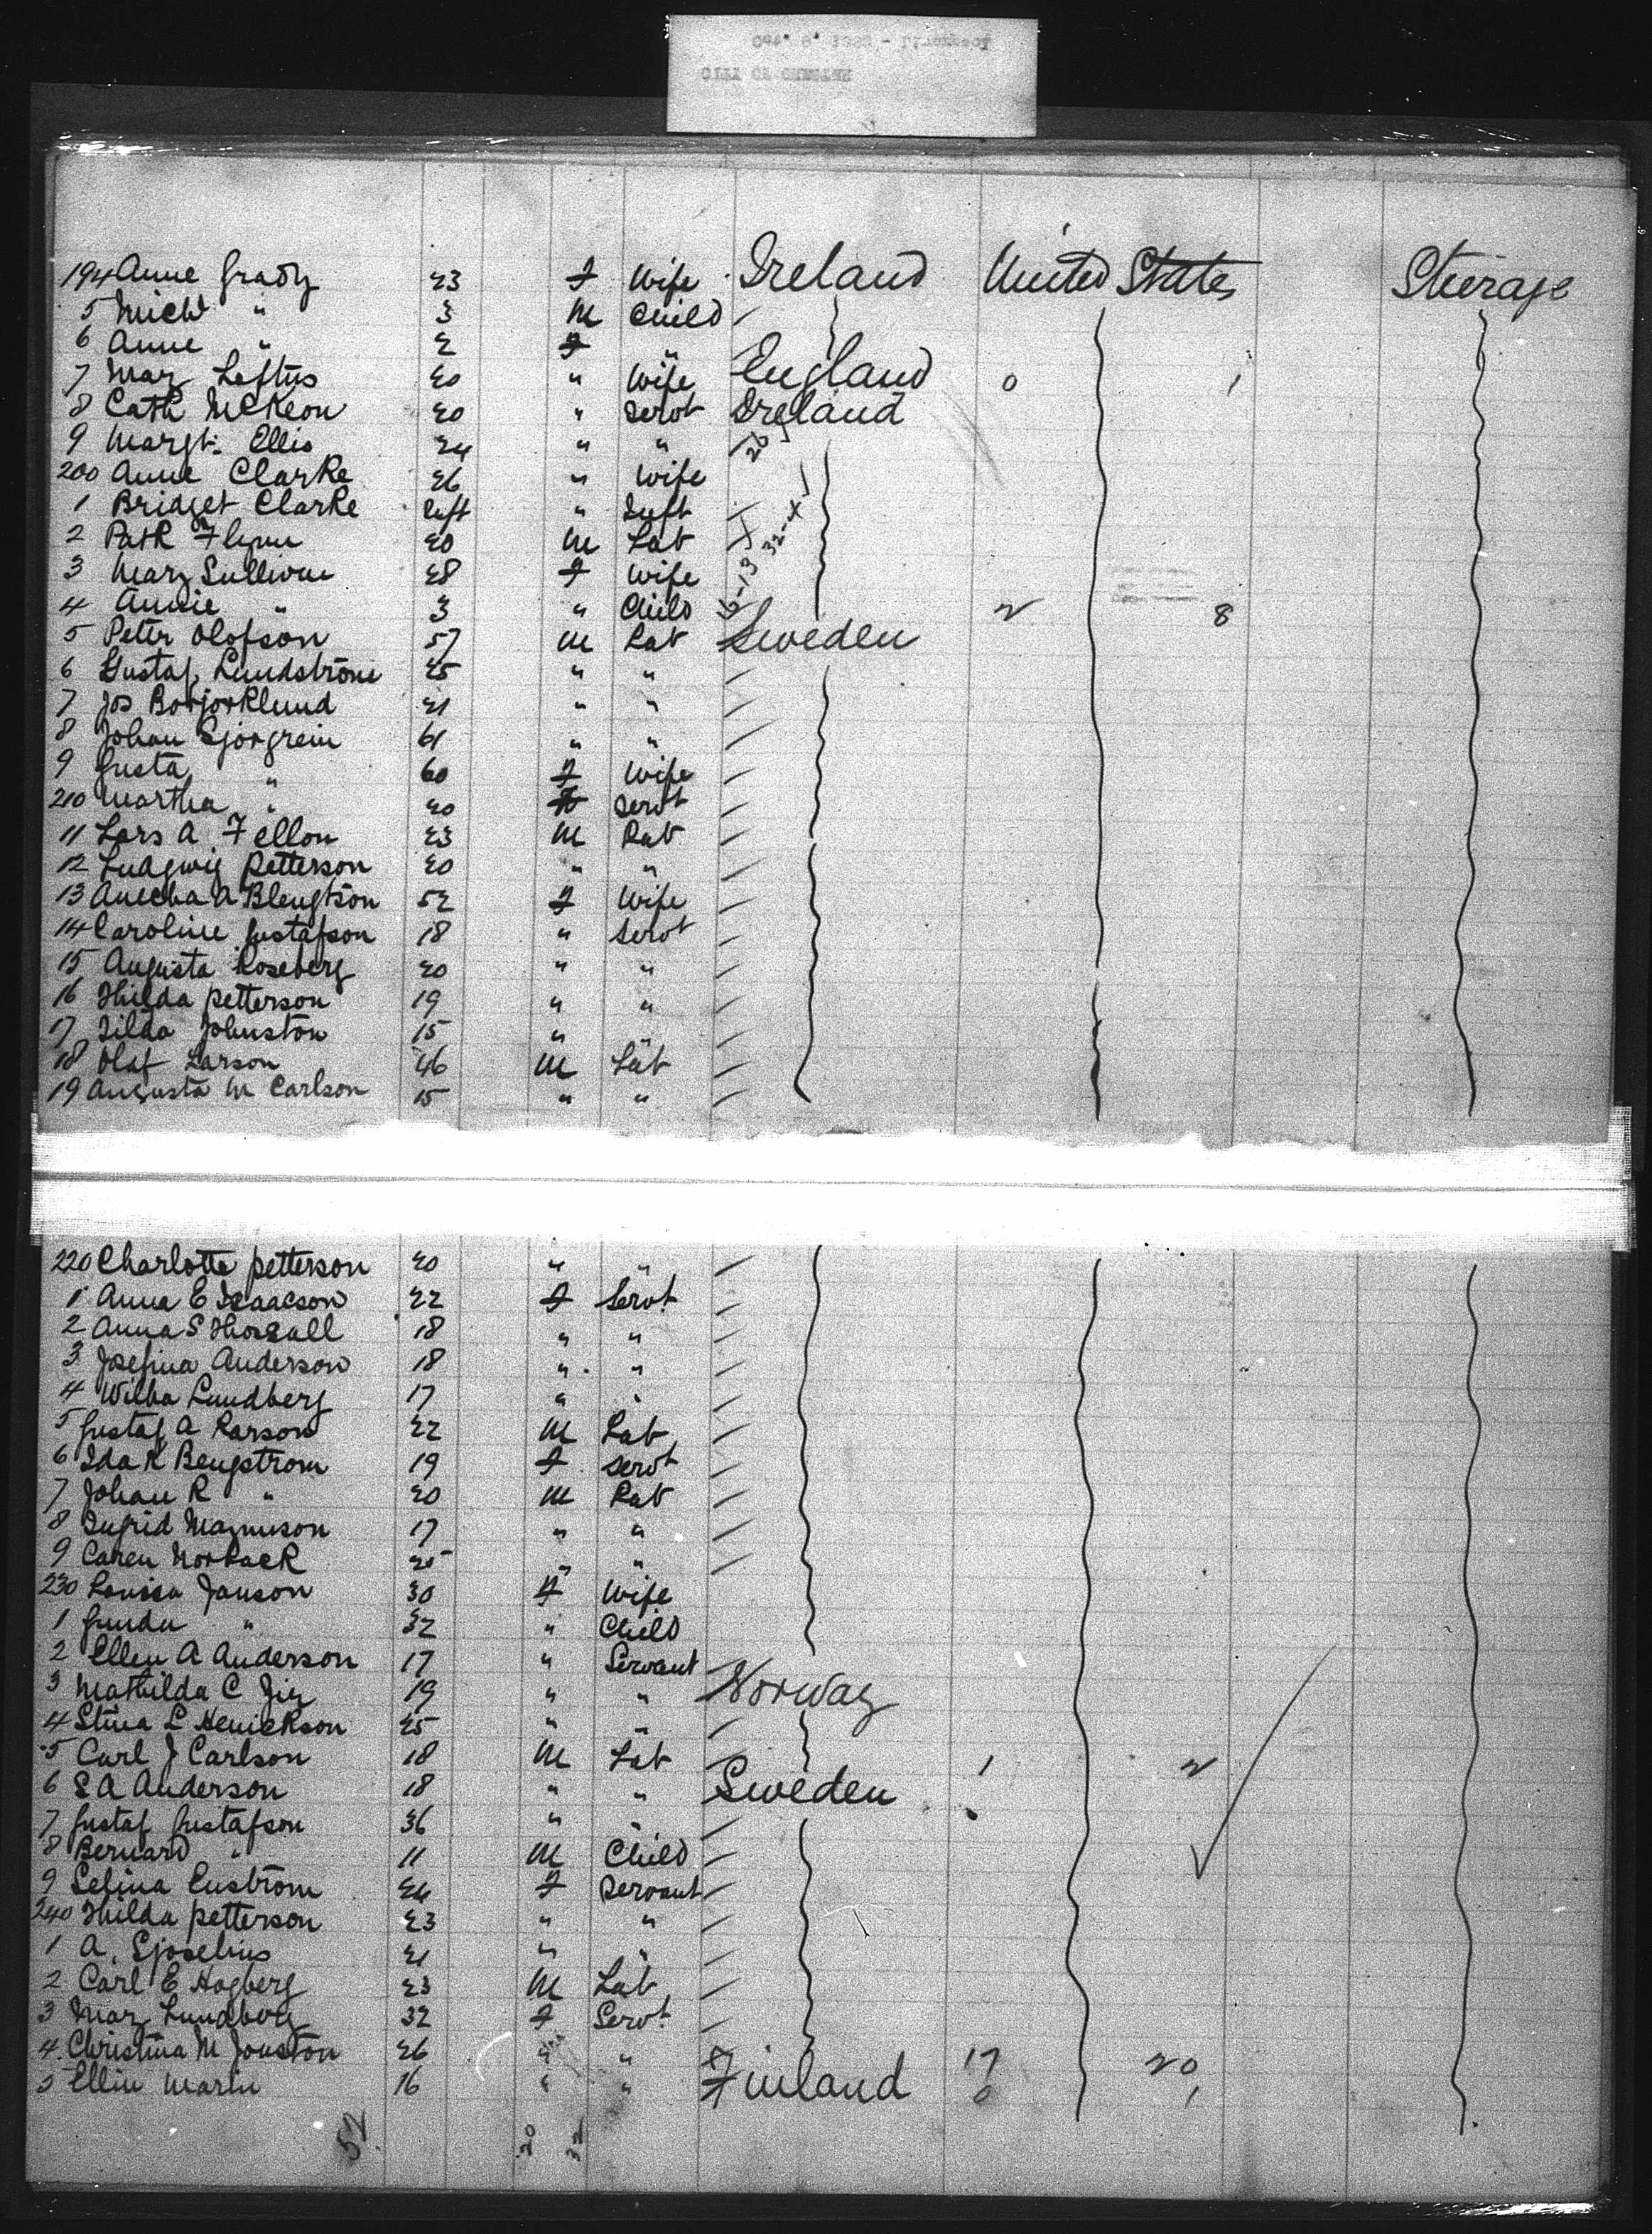 CITY OF CHESTER
194 Anne Grady 23 F Wife Ireland United States Steerage
5 Michl " 3 M Child
6 Anne " 2 F "
7 Mary Loftus 20 " Wife England 0 1
8 Cath McKeon 20 " Servt Ireland
9 Margt. Ellis 24 " "
200 Anne Clarke 26 " Wife
1 Bridget Clarke Inft " Inft
2 Patk Flynn 20 M Lab
3 Mary Sullivan 28 F Wife
4 Annie " 3 " Child 2 8
5 Peter Olofson 57 M Lab Sweden
6 Gustaf Lundström 25 " "
7 Jos Borjorklund 21 " "
8 Johan Sjorgrein 61 " "
9 Gusta " 60 F Wife
210 Martha " 20 F Servt
11 Lars A. Fellon 23 M Lab
12 Ludgwig Petterson 20 " "
13 A Blengtson 52 F Wife
14 Caroline Gustafson 18 " Servt
15 Augusta Roseberg 20 " "
16 Hilda Petterson 19 " "
17 Tilda Johnston 15 " "
18 Olaf Larson 46 M Lab
19 Augusta M Carlson 15 " "
220 Charlotta Petterson 20 " "
1 Anna E Isaacson 22 F Servt
2 Anna S 18 " "
3 Josefina Anderson 18 " "
4 Lundberg 17 " "
5 Gustaf A Larson 22 M Lab
6 Ida K Bengstrom 19 F Servt
7 Johan R " 20 M Lab
8 Ingrid Magnuson 17 " "
9 Caren Norback 25 " "
230 Louisa Janson 30 F Wife
1 Gunda " " Child
2 Ellen A Anderson 17 " Servant
3 Mathilda C 19 " " Norway
4 Stina L Henickson 25 " "
5 Carl J Carlson 18 M Lab 1 2
6 S A Anderson 18 " " Sweden
7 Gustaf Gustafson 36 " "
8 Bernard " 11 M Child
9 Selina Enström 24 F Servant
240 Hilda Petterson 23 " "
1 A. Sjoselius 21 " "
2 Carl E Hogberg 23 M Lab
3 Mary Lundborg 32 F Servt
4 Christina M Jonston 26 " " 17 20
5 Ellin Martin 16 " " Finland 0 1
52 20 32